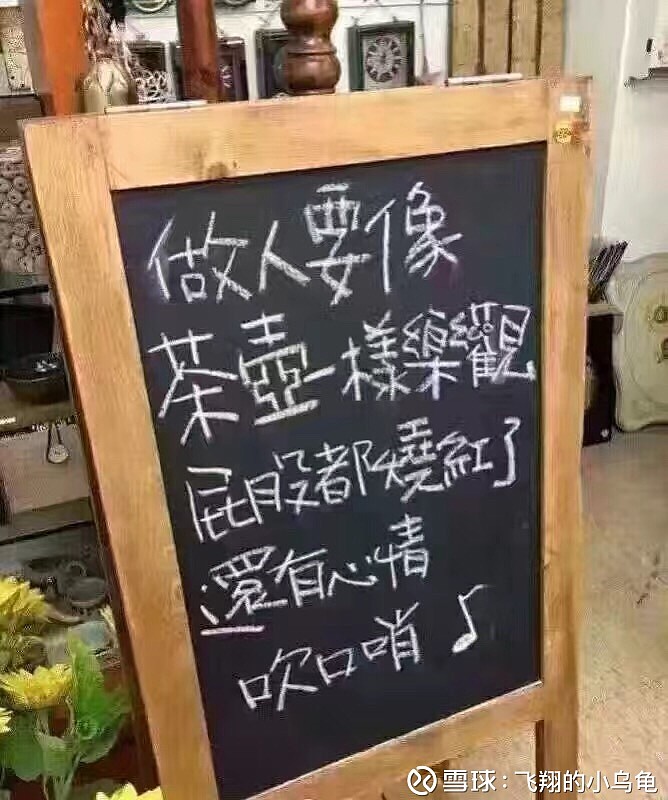 做人要像
茶壺一樣樂觀
屁股都燒紅了
還有心情
吹口哨♪
雪球:飞翔的小乌龟